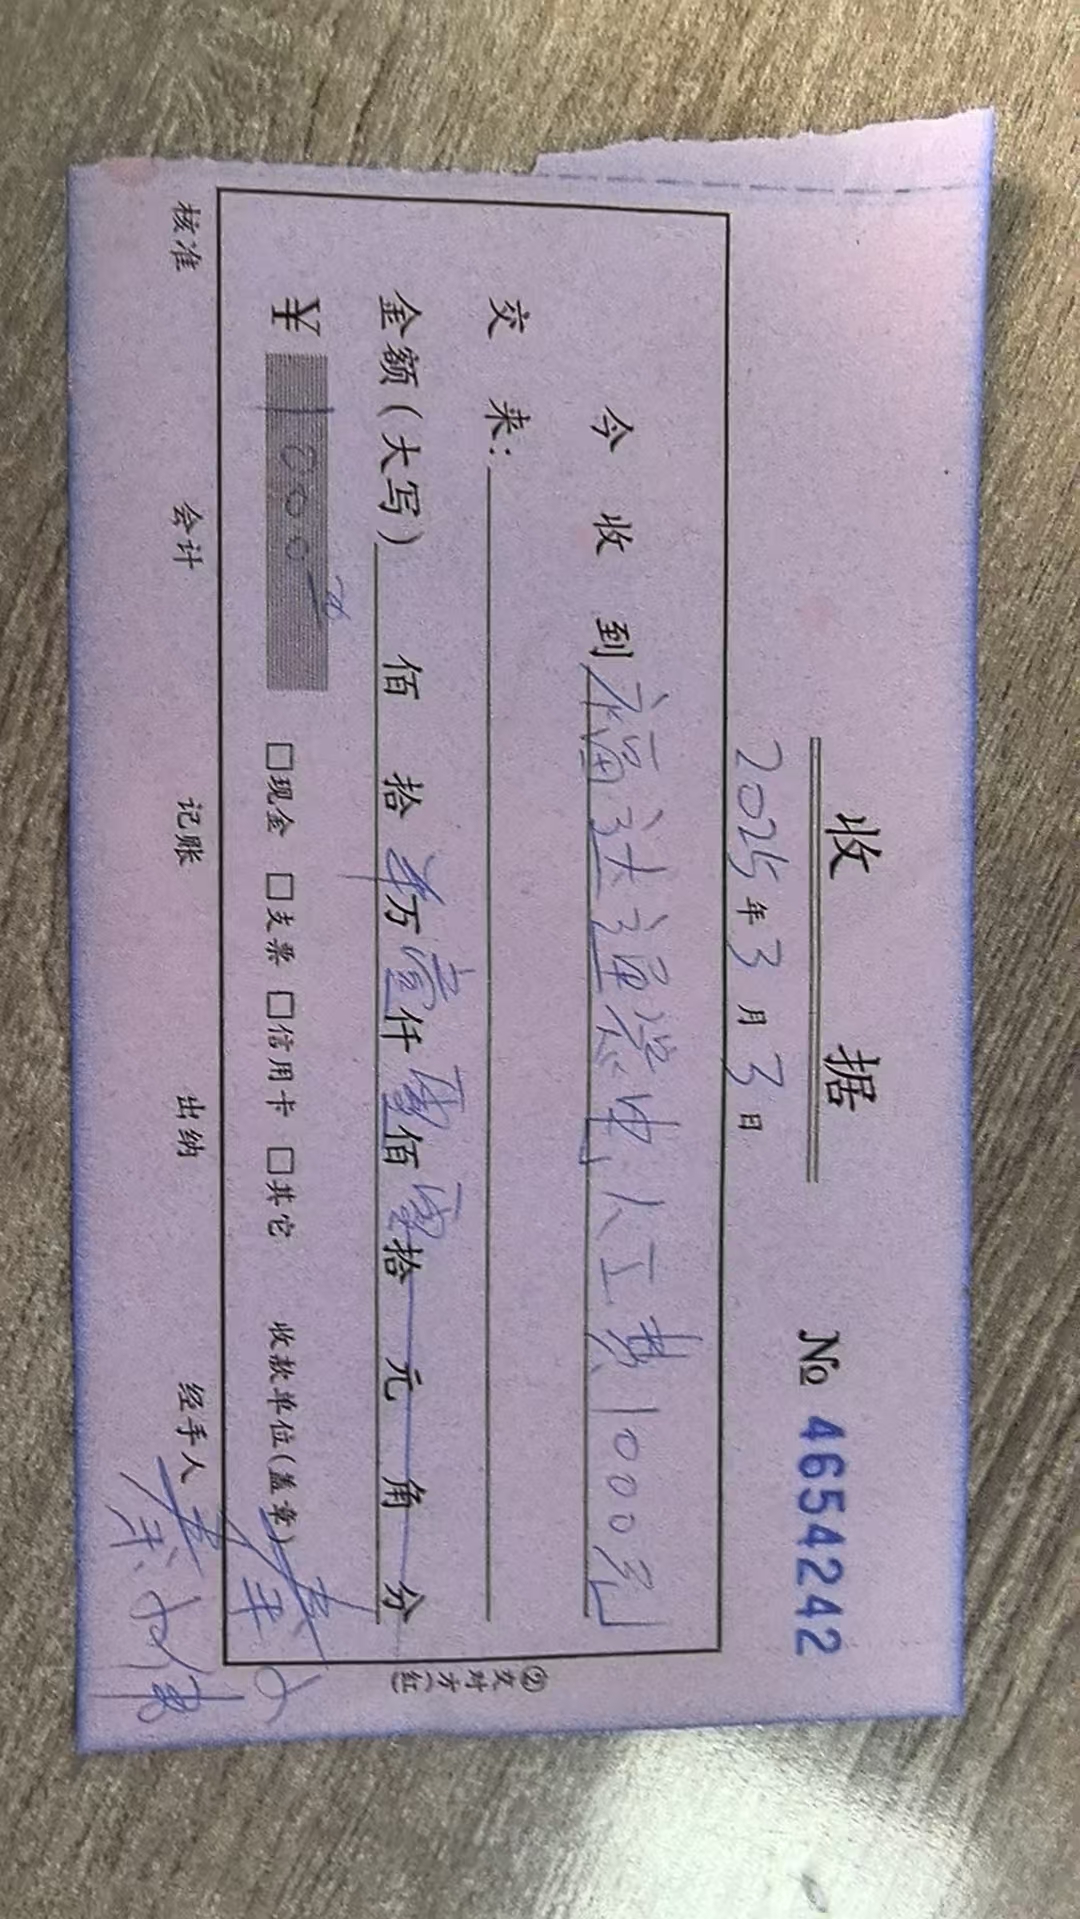 收 据
№ 4654242
2025年3月3日
今 收 到 永福达通 电人工费1000元
交 来:
金额(大写) 佰 拾 万 壹仟 零佰 零拾 元 角 分
¥ 1000元
□现金 □支票 □信用卡 □其它 收款单位(盖章)
核准 会计 记账 出纳 经手人
②交对方(红)